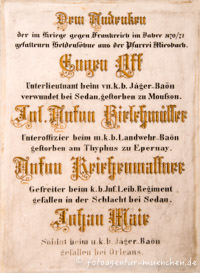 Dem Andenken
der im Kriege gegen Frankreich im Jahre 1870/71
gefallenen Heldensöhne aus der Pfarrei Miesbach.
Eugen Ott
Unterlieutnant beim k.b. Jäger-Baón
verwundet bei Sedan, gestorben zu Mouson.
Jos. Anton
Unteroffizier beim k.b. Landwehr-Baón
gestorben am Thyphus zu Epernay.
Anton Reichenwallner
Gefreiter beim k.b. Inf. Leib. Regiment
gefallen in der Schlacht bei Sedan.
Johan Maie
Soldat beim k.b. Jäger-Baón
gefallen bei Orleans.
fotoagentur-muenchen.de